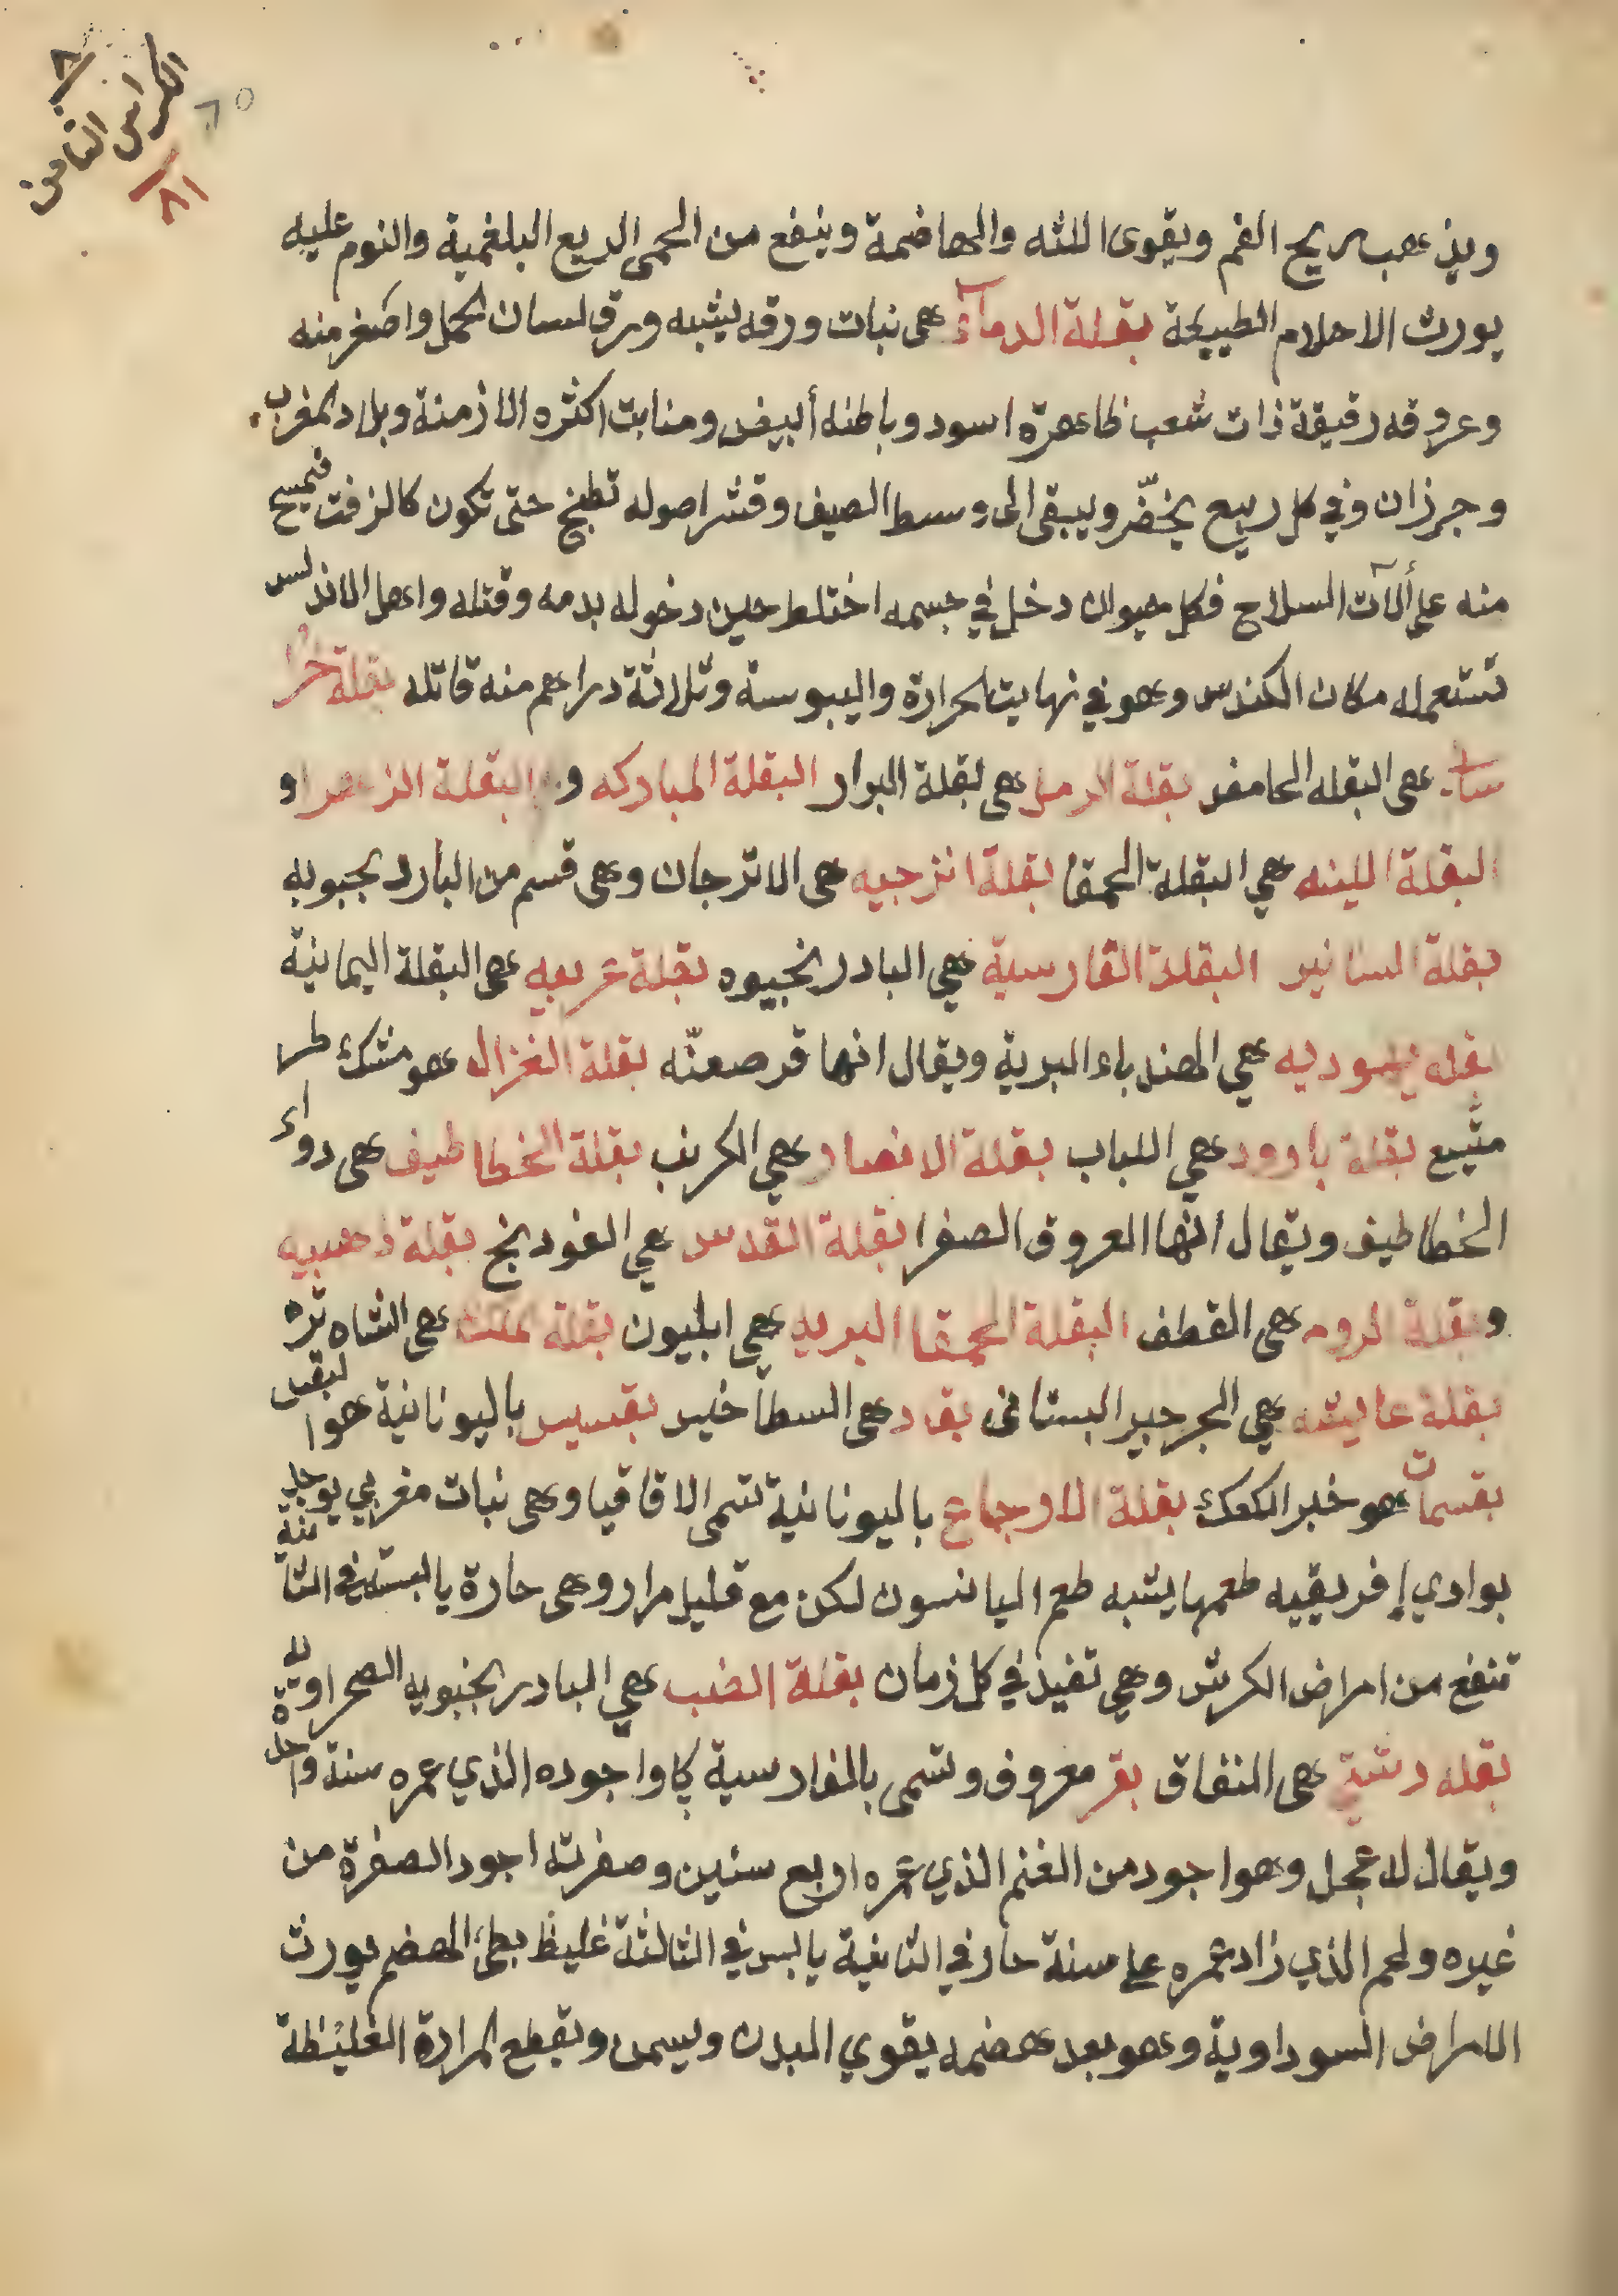 ٨
الكراس الثامن
٦٥
٨١
ويذهب ريح الفم ويقوى اللثه والهاضمة وينفع من الحمى الربع البلغمية والنوم عليه
يورث الاحلام الطييحة بقلة الدمآء هى نبات ورقه يشبه ورق لسان الحمل واصغر منه
وعروقه رقيقة ذات شعب ظاهرة اسود وباطنه أبيض ومنابت اكثره الازمنة وبلاد المغرب
وجرزان وفي كل ربيع يخضّر ويبقى الى وسط الصيف وقشر اصوله تطبخ حتى تكون كالزفت فيمسح
منه على ألآت السلاح فكل حيوان دخل في جسمه اختلط حين دخوله بدمه وقتله واهل الاندلس
تستعمله مكان الكندس وهو في نهايت الحرارة واليبوسة وثلاثة دراهم منه قاتله بقلة خر
سا هى البقله الحامض بقلة الرمل هى بقلة البوار البقلة المباركه و البقلة الزهرا و
البقلة اللينه هي البقلة الحمقا بقلة اترجيه هى الاترجان وهى قسم من البادرنجبويه
بقلة السانير البقلة الفارسية هي البادرنجبيوه بقلة عربيه هى البقلة اليمانية
بقله يهوديه هي الهندباء البرية ويقال انها قرصعنّه بقلة الغزال هو مشك طر
مشّيع بقلة بارود هي اللباب بقلة الانصار هي الكرنب بقلة الخطاطيف هى دواء
الخطاطيف ويقال انها العروق الصفرا بقلة القدس هي الفودنج بقلة ذهبيه
وبقلة الروم هى القطف البقلة الحمقا البريه هي ابليون بقلة هى الشاه تره
بقلة عايشه هي الجرجير البستانى بقاد هى السطاخيس بقسيس باليونانية هو البقس
بقسمات هو خبز الكعك بقلة الاوجاع باليونانية تسمى الاقاقيا وهى نبات مغربي يوجد
بوادي إفريقيه طعمها يشبه طعم اليانسون لكن مع قليل مرار وهى حارة يابسة في الثانية
تنفع من امراض الكرش وهي تفيد في كل زمان بقلة الضب هي البادرنجبويه الصحراوية
بقله دشتي هى النفاق بقر معروف وتسمى بالفارسية كاو اجوده الذي عمره سنة واحدة
ويقال له عجل وهو اجود من الغنم الذي عمره اربع سنين وصفرته اجود الصفرة من
غيره ولحم الذي زاد عمره على سنة حار في الثانية يابس في الثالثة غليظ بطئ الهضم يورث
الامراض السوداوية وهو بعد هضمه يقوي البدن ويسمن ويقطع المرارة الغليظة